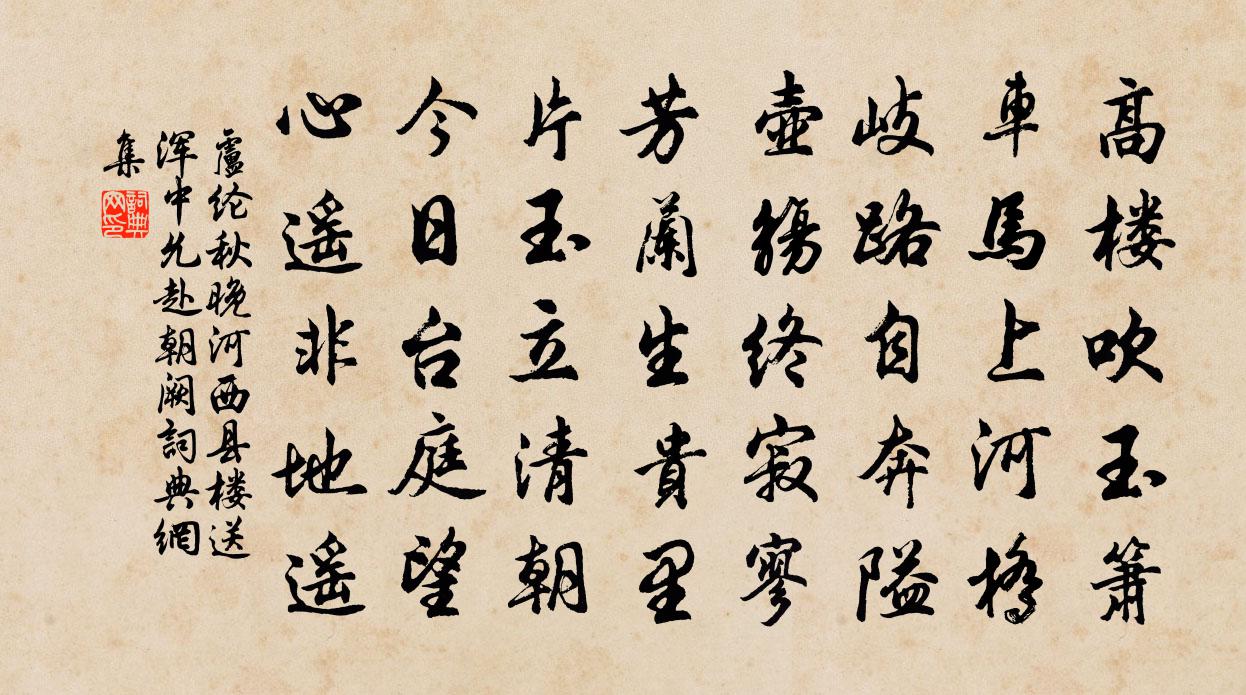 高楼吹玉箫
車馬上河橋
岐路自奔隘
壺觴终寂寥
芳蘭生貴里
片玉立清朝
今日台庭望
心遥非地遥
盧纶秋晚河西县楼送
浑中允赴朝阙詞典網
集
詞典网印